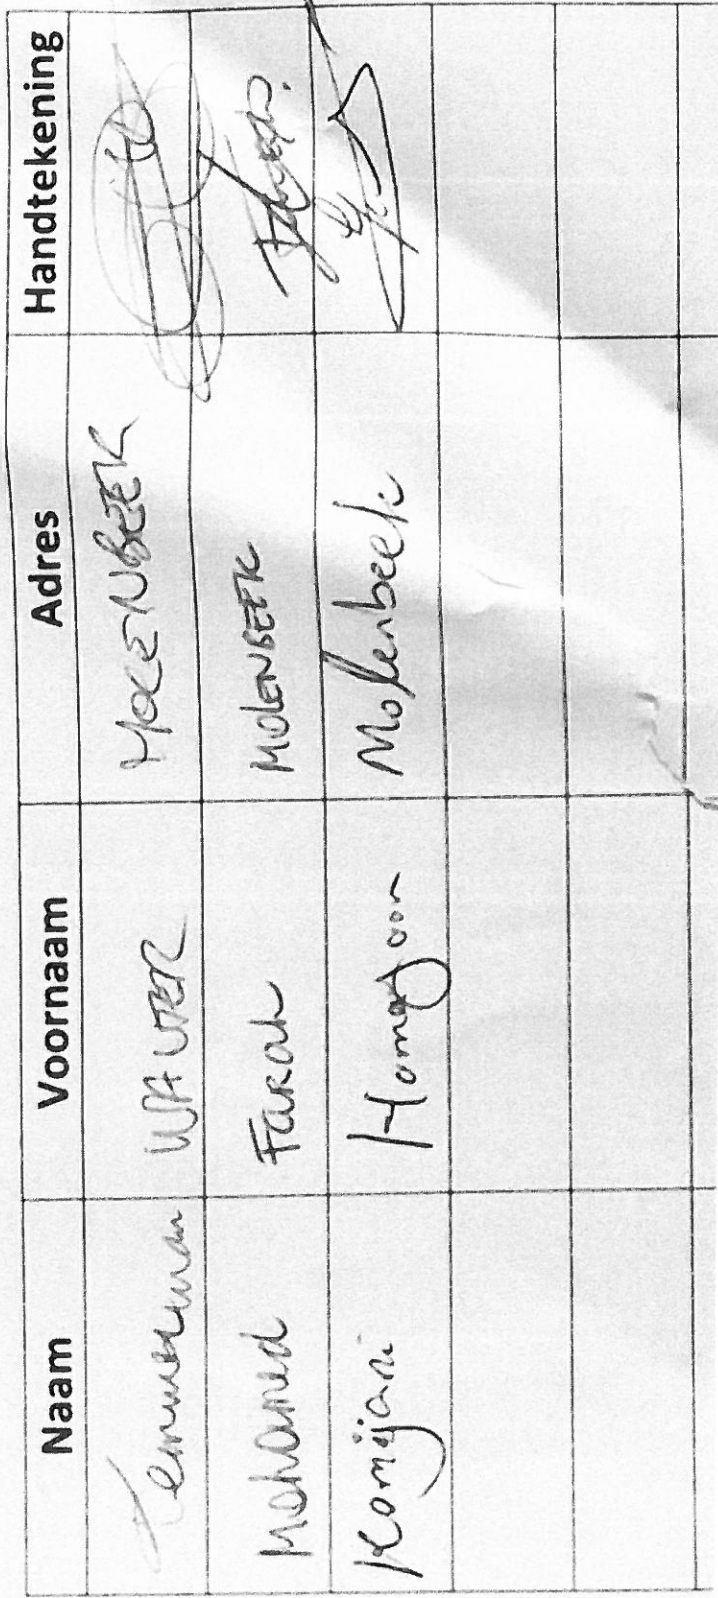 Naam Voornaam Adres Handtekening
Temmerman WAUTER MOLENBEEK
Mohamed Farah MOLENBEEK
Komijani Homayoon Molenbeek